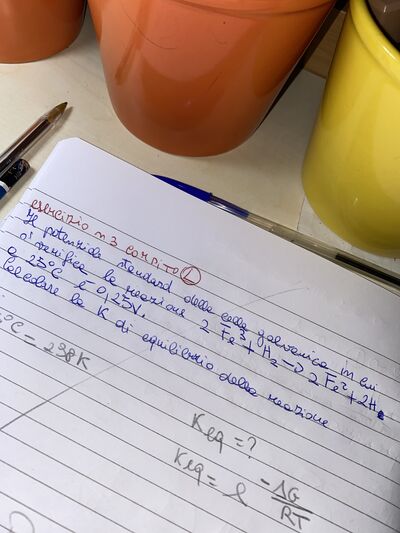 esercizio n 3 compito 1
Il potenziale standard della cella galvanica in cui
si verifica la reazione 2 Fe³ + H₂ → 2 Fe² + 2H
a 25°C è 0,25V.
Calcolare la K di equilibrio della reazione
5°C = 298K
Keq = ?
Keq = e -ΔG/RT